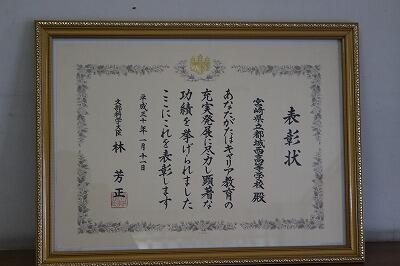 表彰状
宮崎県立都城西高等学校 殿
あなたがたはキャリア教育の
充実発展に尽力し顕著な
功績を挙げられました
ここにこれを表彰します
平成三十年一月十一日
文部科学大臣 林 芳正